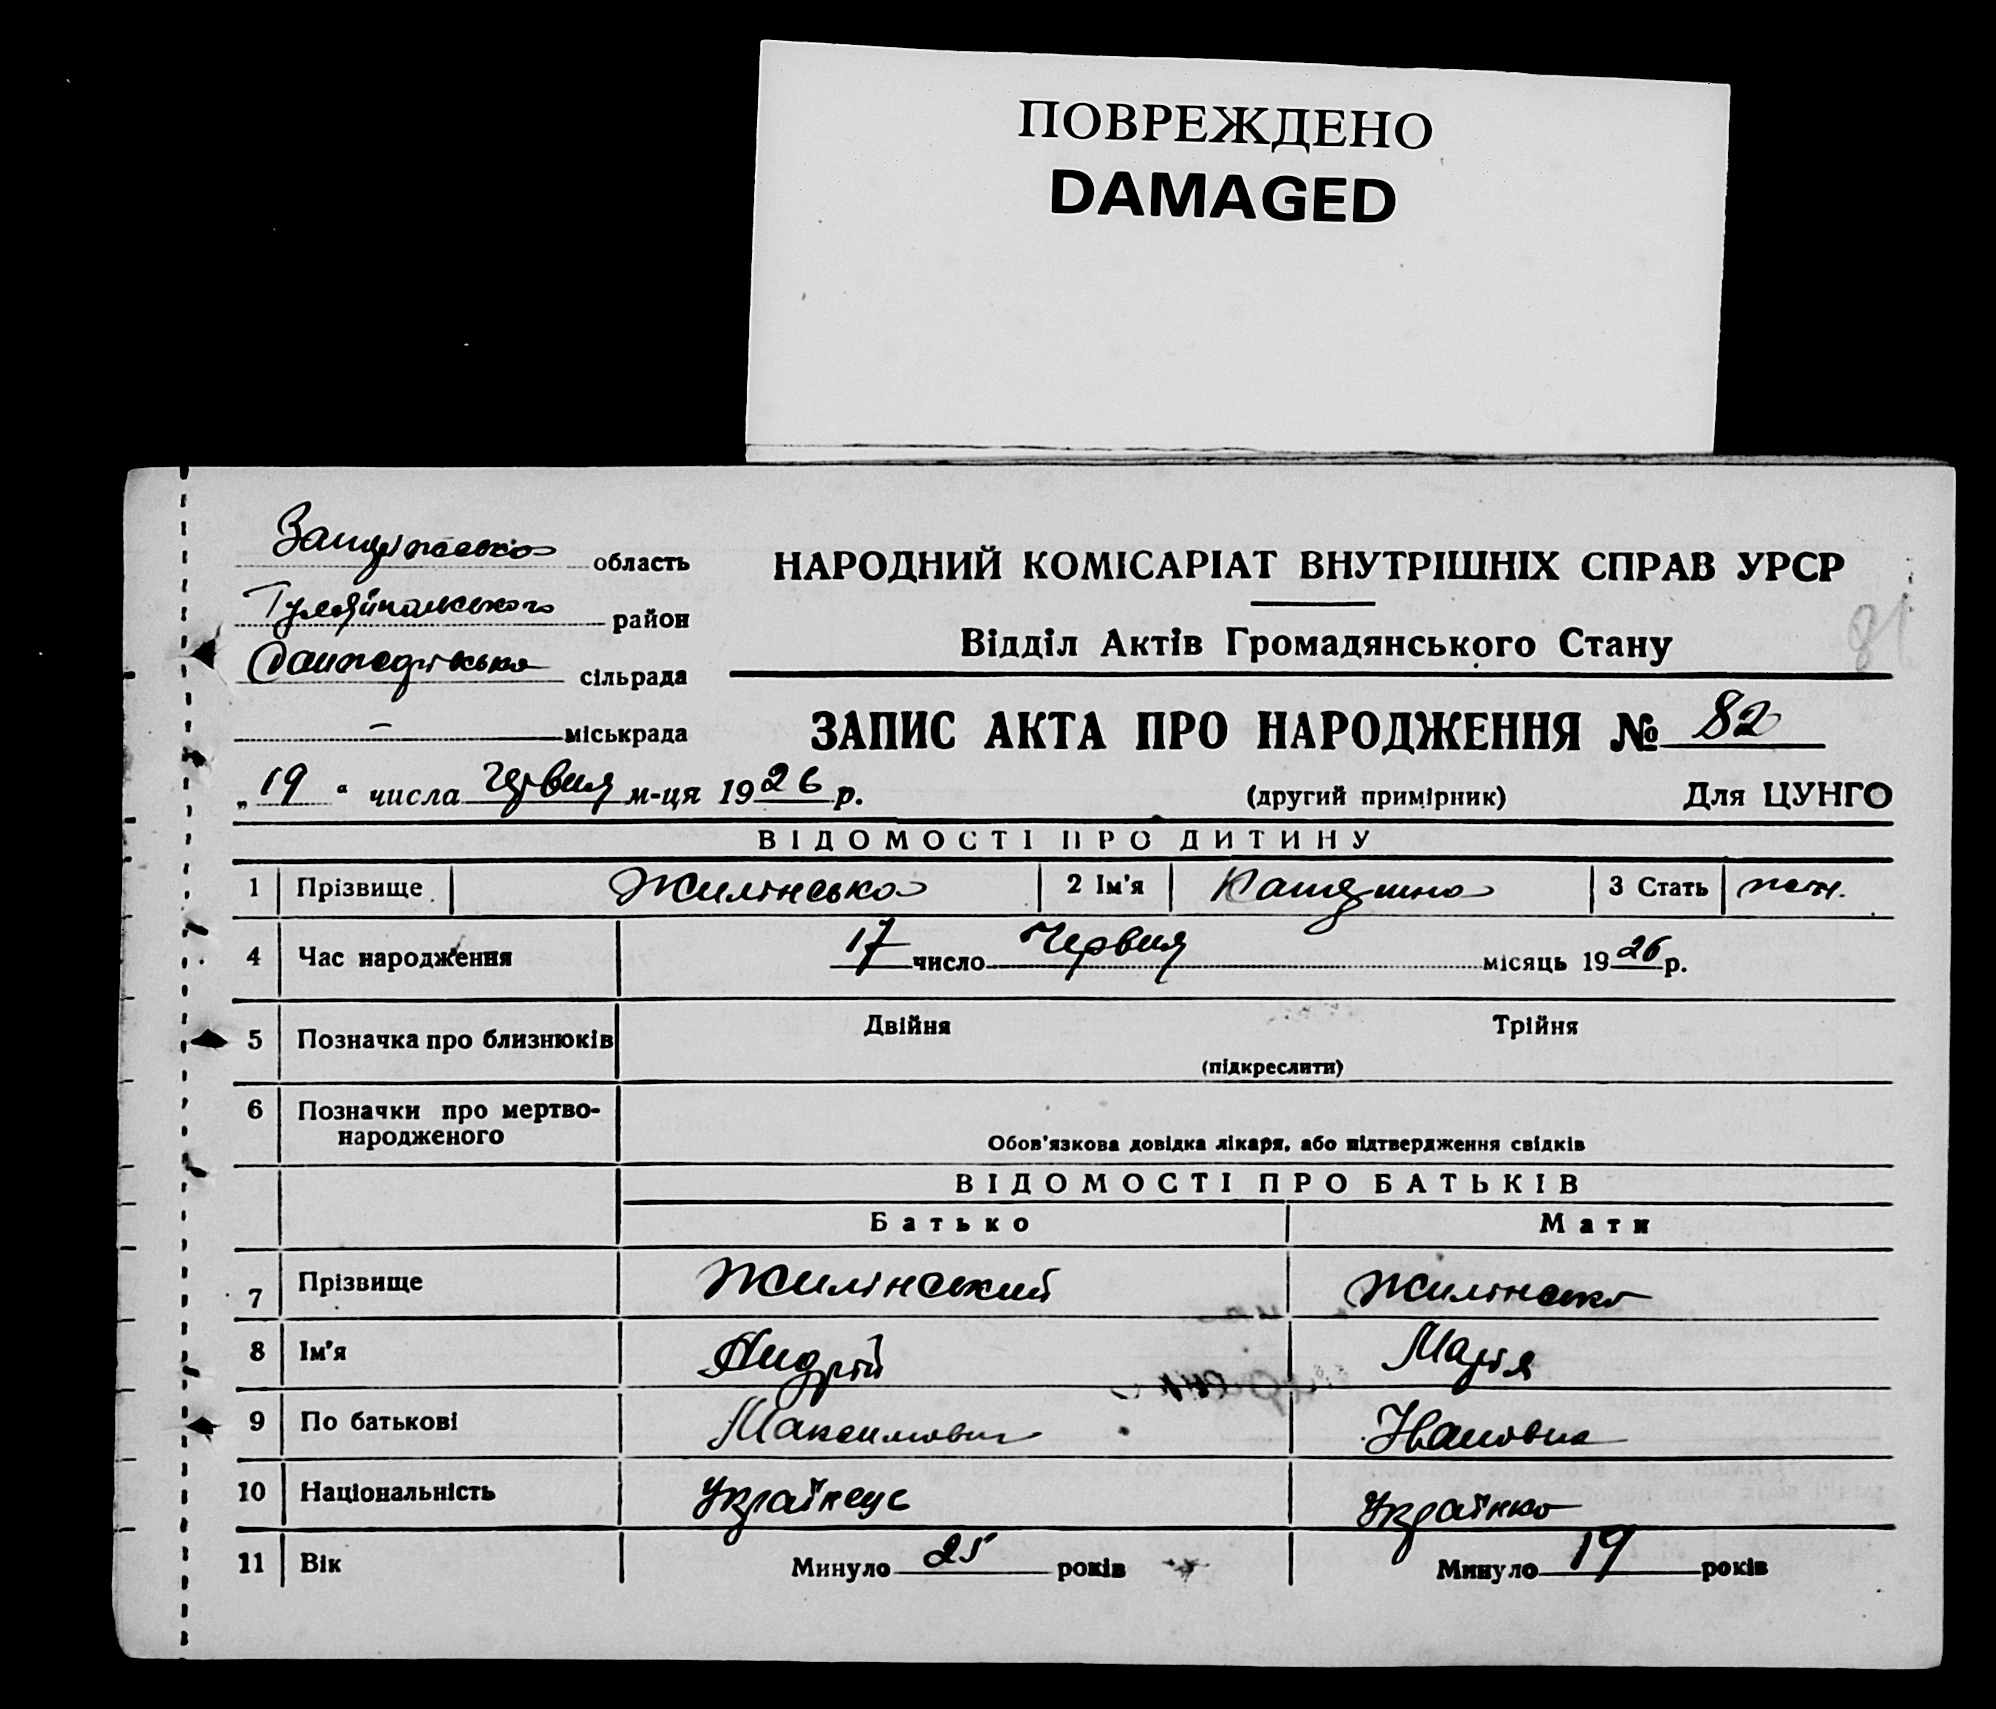 ПОВРЕЖДЕНО
DAMAGED
область
НАРОДНИЙ КОМІСАРІАТ ВНУТРІШНІХ СПРАВ УРСР
Гуляйпольського район
Відділ Актів Громадянського Стану
81
сільрада
міськрада
ЗАПИС АКТА ПРО НАРОДЖЕННЯ № 82
„19“ числа Червня м-ця 1926 р.
(другий примірник) Для ЦУНГО
ВІДОМОСТІ ПРО ДИТИНУ
1 Прізвище Жилінська 2 Ім'я 3 Стать жін.
4 Час народження 17 число Червня місяць 1926 р.
5 Позначка про близнюків Двійня Трійня
(підкреслити)
6 Позначки про мертво-
народженого
Обов'язкова довідка лікаря, або підтвердження свідків
ВІДОМОСТІ ПРО БАТЬКІВ
Батько Мати
7 Прізвище Жилінський Жилінська
8 Ім'я Андрій Марія
9 По батькові Максимович Івановна
10 Національність Українець Українка
11 Вік Минуло 25 років Минуло 19 років